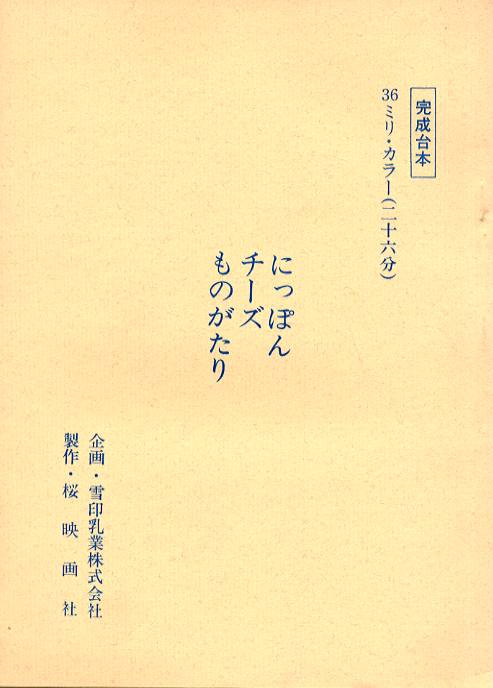 完成台本
36ミリ・カラー(二十六分)
にっぽん
チーズ
ものがたり
企画・雪印乳業株式会社
製作・桜映画社